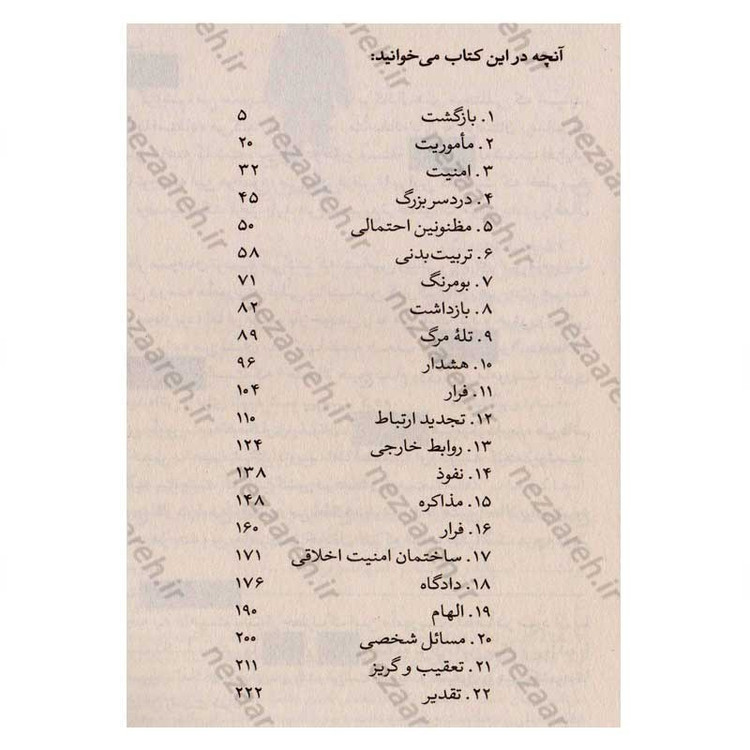 آنچه در این کتاب می‌خوانید:
۱. بازگشت ۵
۲. مأموریت ۲۰
۳. امنیت ۳۲
۴. دردسر بزرگ ۴۵
۵. مظنونین احتمالی ۵۰
۶. تربیت‌بدنی ۵۸
۷. بومرنگ ۷۱
۸. بازداشت ۸۲
۹. تلهٔ مرگ ۸۹
۱۰. هشدار ۹۶
۱۱. فرار ۱۰۴
۱۲. تجدید ارتباط ۱۱۰
۱۳. روابط خارجی ۱۲۴
۱۴. نفوذ ۱۳۸
۱۵. مذاکره ۱۴۸
۱۶. فرار ۱۶۰
۱۷. ساختمان امنیت اخلاقی ۱۷۱
۱۸. دادگاه ۱۷۶
۱۹. الهام ۱۹۰
۲۰. مسائل شخصی ۲۰۰
۲۱. تعقیب و گریز ۲۱۱
۲۲. تقدیر ۲۲۲
nezaareh.ir